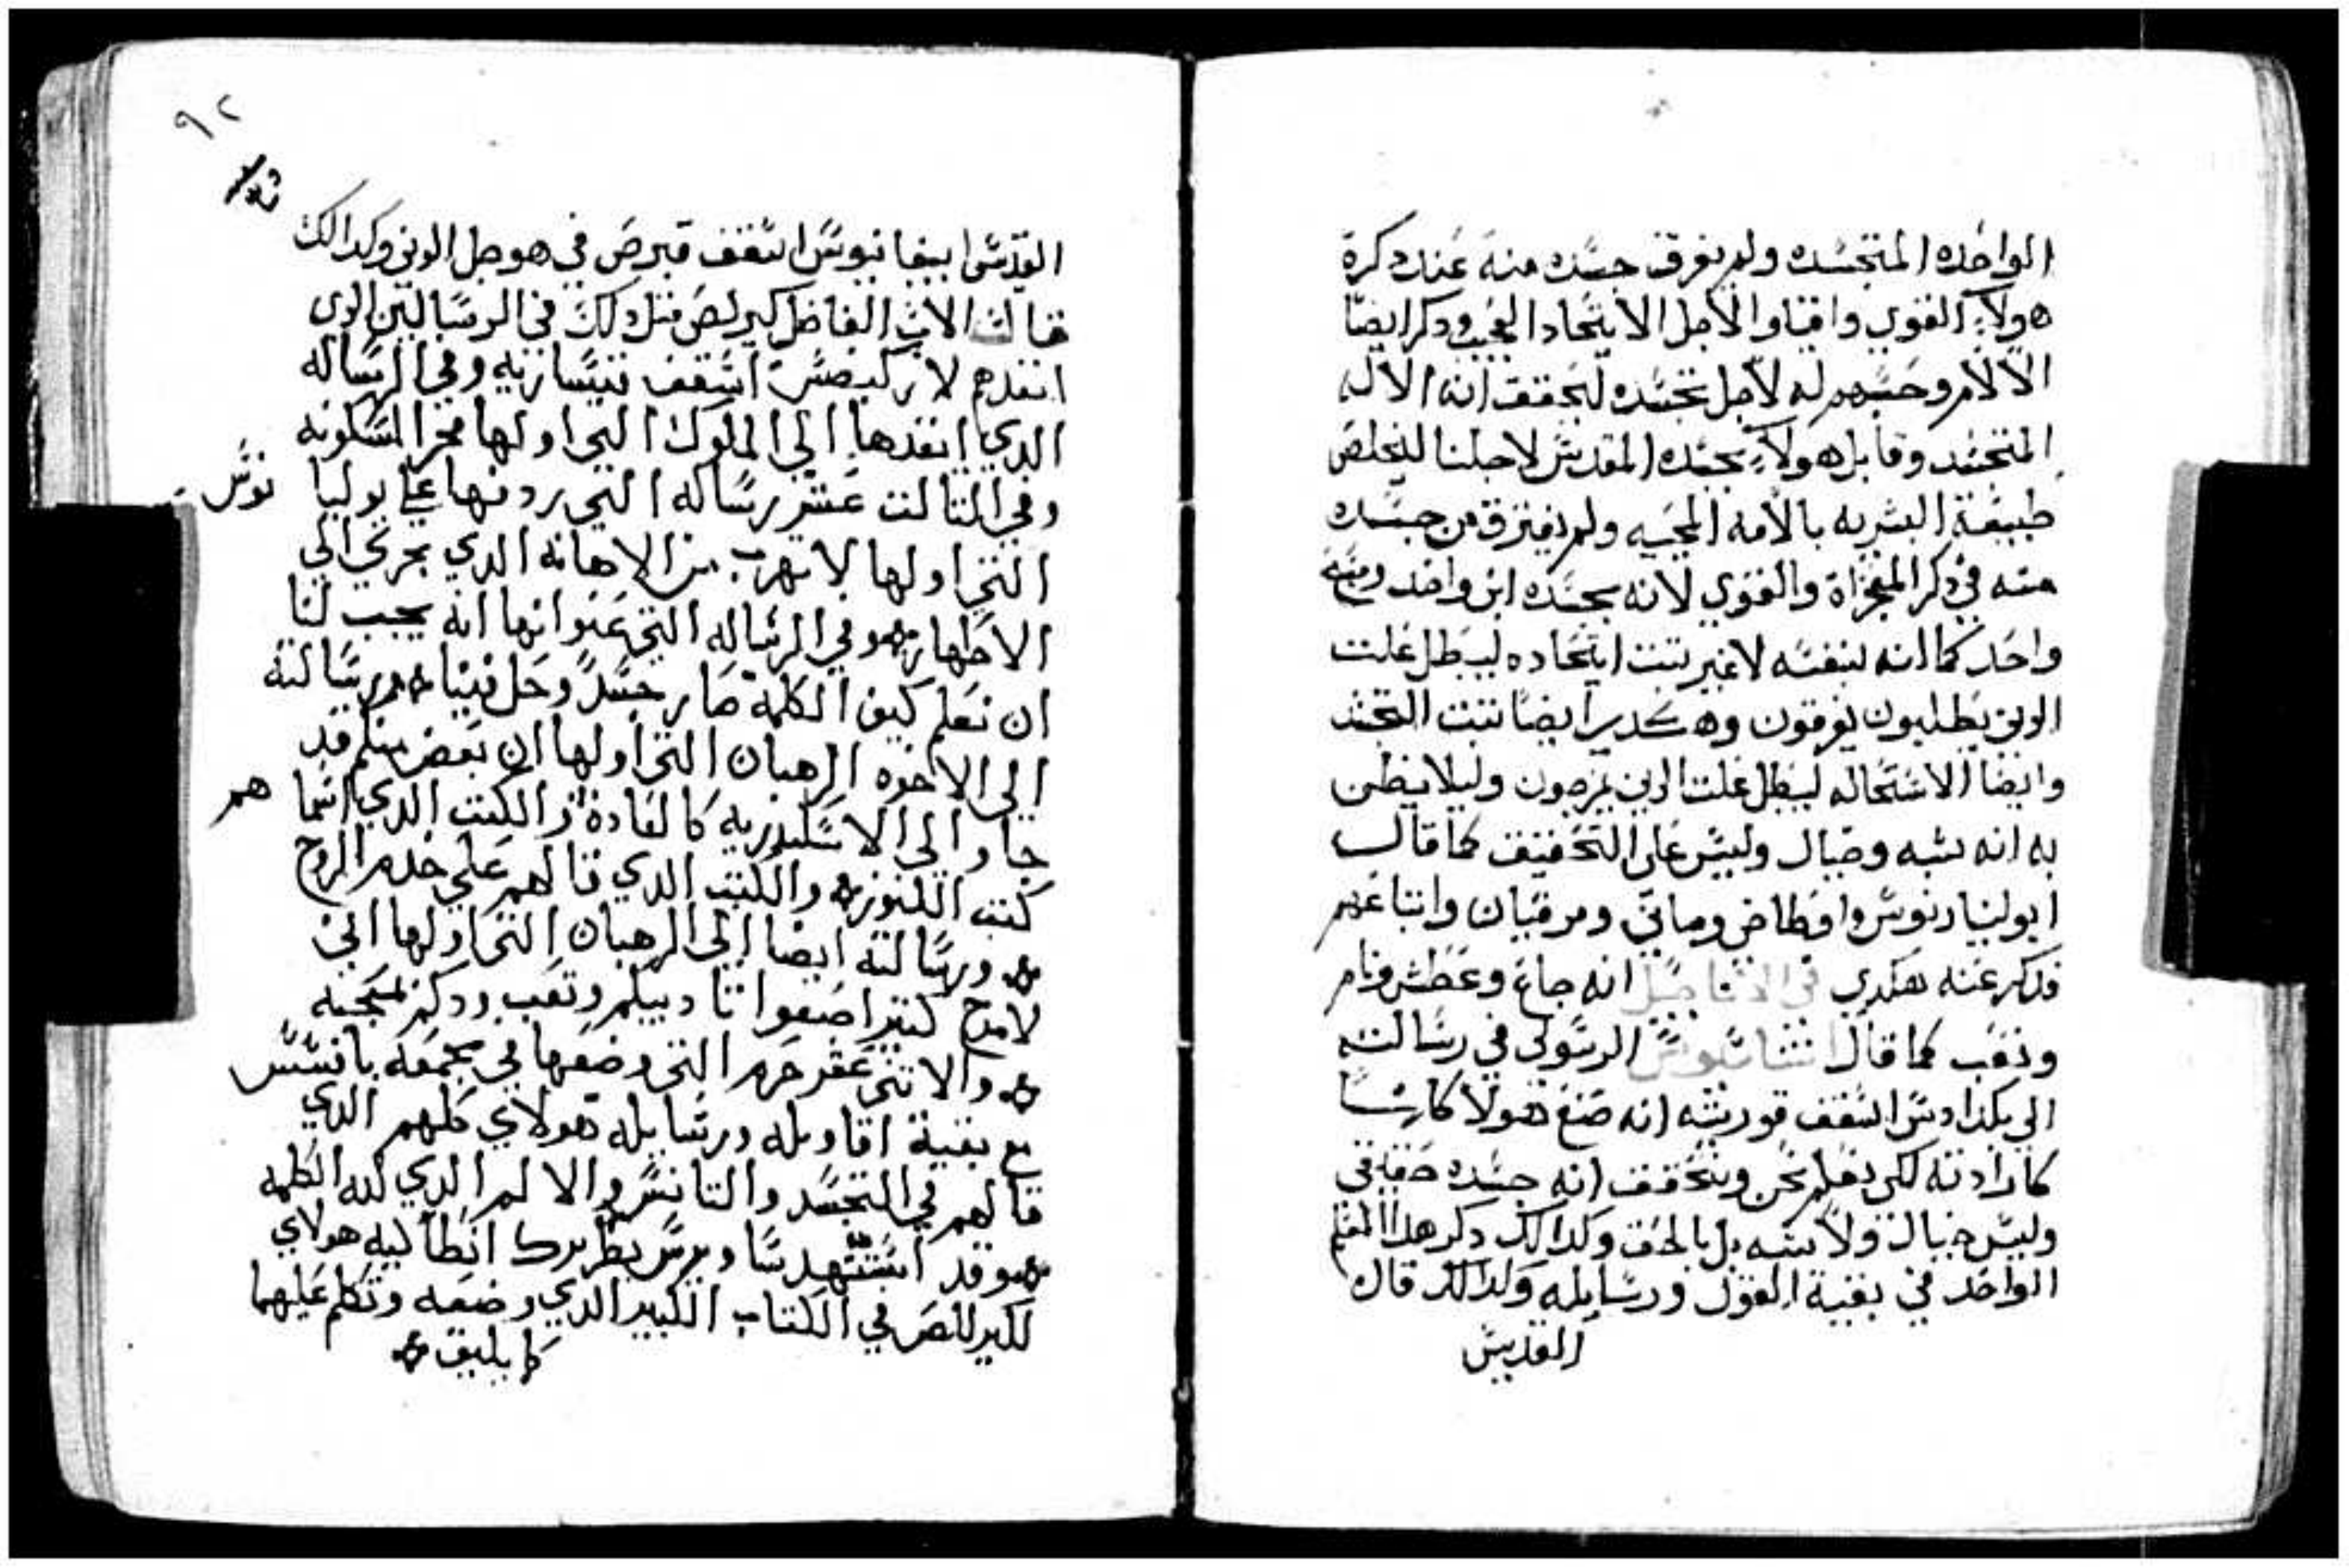 الواحده المتجسده ولم يفرق جسده منه عند دكرة
هولاء القوي واقناوا لاجل الايتحاد العجيب ودكر ايضًا
الالام وحسبهم له لاجل تجسده ليحقق انه الاله
المتجسد وقابل هولاء بجسده المقدس لاجلنا ليخلص
طبيعة البشريه بالامه المحييه ولم يفترق من جسده
منه في دكر المعجزاة والقوي لانه بجسده ابن واحد ومنه
واحد كما انه لنفسه لا غير تبت ايتحاده ليبطل غلت
الدين يطلبون يفرقون وهكدي ايضًا تبت التجسد
وايضا الاستحاله ليبطل غلت الدين يمزجون وليلا يظن
به انه شبه وخيال وليس على التحقيق كما قال
ابوليناريوس واوطاخي وماني ومرقيان واتباعهم
فدكر عنه هكدي في الاناجيل انه جاع وعطش ونام
وتعب كما قال اتناسيوس الرسولى في رسالته
الي بكداوس اسقف قورنته انه صنع هولا كارسا
كارادته لكي نعلم نحن ونتحقق انه جسده حقيقي
وليس خيال ولا شبه بل بالحق وكدالك دكر هدا المعلم
الواحد في بقية القول ورسايله وكدالك قال
القديس
٩٢
القديس ابيفانيوس اسقف قبرص في هو جل الدين وكدالك
قال الاب الفاضل كيرلص متل دلك في الرسالتين الدى
انفدهم لا اسقف وفي الرساله
الدي انفدها الي الملوك التي اولها فخر المسكونه
وفي التالت عشر رساله التي ردفها على يوليا نوس
التي اولها لا تهرب من الاهانه الدي بجري الي
الاطهار وفي الرساله التي عنوانها انه يجب لنا
ان نعلم كيف الكلمة صار جسدً وحل فينا ورسالته
الي الاخوه الرهبان التي اولها ان بعض منكم قد
جاوا الي الاسكندريه كالعادة والكتب الدي اسما هم
كتب الكنوز والكتب الدي قالهم على خدم الروح
ورسالته ايضا الى الرهبان التي اولها اني
لامدح كتير اصغوا تاديبكم وتعب ودكر لمحبه
والاتني عشر حرم التي وضعها في مجمعه بافسس
مع بقية اقاويله ورسايله هولاي كلهم الدي
قالهم في التجسد والتانس والالم الدي لله الكلمه
وقد استشهد ساويرس بطريرك انطاكيه هولاي
لكيرلص في الكتاب الكبير الدي وضعه وتكلم عليهما
كما يليق